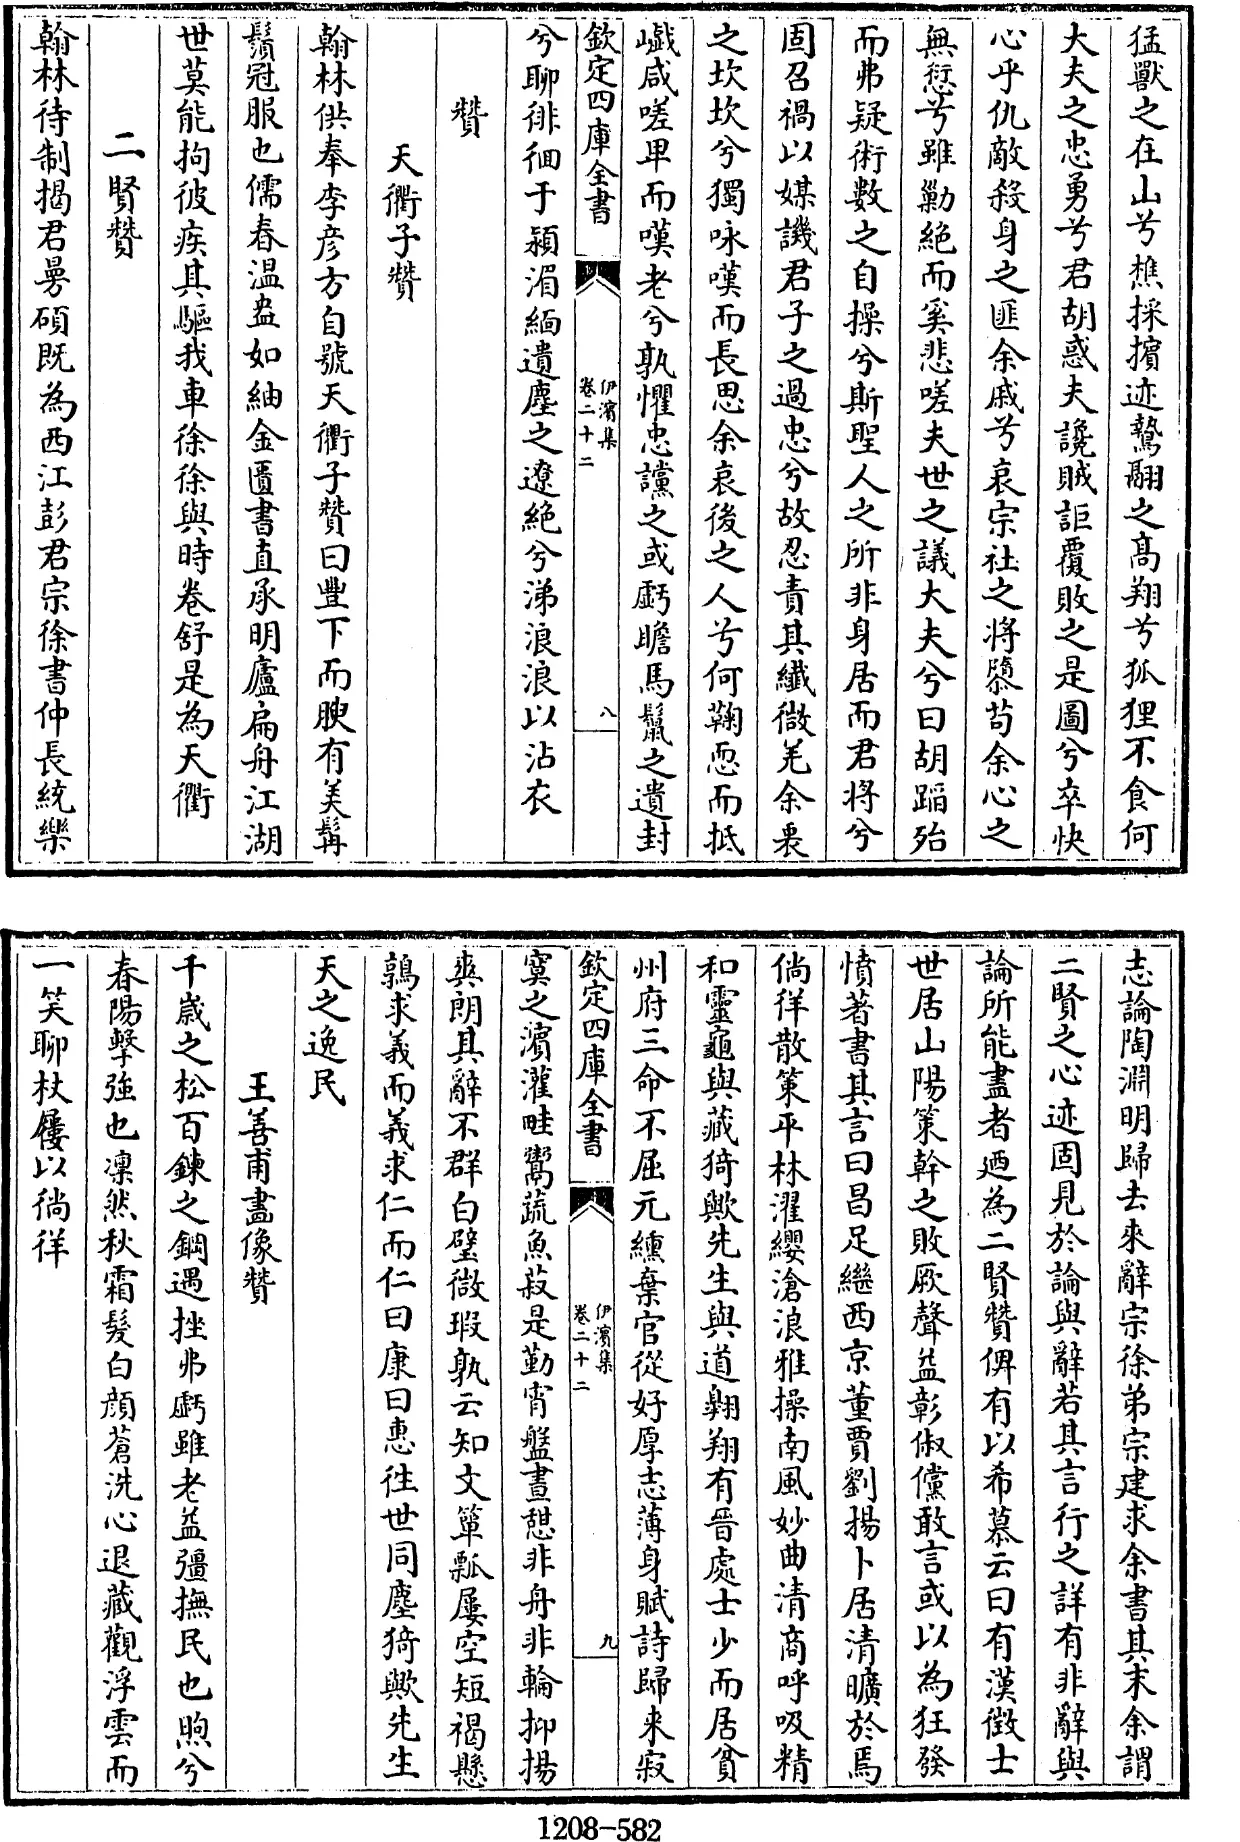 猛獸之在山兮樵採擯迹鷙翮之髙翔兮狐狸不食何
大夫之忠勇兮君胡惑夫讒賊詎覆敗之是圖兮卒快
心乎仇敵殺身之匪余戚兮哀宗社之將隳苟余心之
無愆兮雖勦絶而奚悲嗟夫世之議大夫兮曰胡蹈殆
而弗疑術數之自操兮斯聖人之所非身居而君將兮
固召禍以媒譏君子之過忠兮故忍責其纎微羌余裹
之坎坎兮獨咏嘆而長思余哀後之人兮何鞠恧而抵
巇咸嗟卑而嘆老兮孰懼忠讜之或虧瞻馬鬛之遺封
欽定四庫全書
伊濵集
卷二十二
八
兮聊徘徊于潁湄緬遺塵之遼絶兮涕浪浪以沾衣
贊
天衢子贊
翰林供奉李彦方自號天衢子贊曰豐下而腴有美髯
鬚冠服也儒春温盎如紬金匱書直承明廬扁舟江湖
世莫能拘彼疾其驅我車徐徐與時卷舒是為天衢
二賢贊
翰林待制揭君曼碩既為西江彭君宗徐書仲長統樂
志論陶淵明歸去來辭宗徐弟宗建求余書其末余謂
二賢之心迹固見於論與辭若其言行之詳有非辭與
論所能盡者廼為二賢贊俾有以希慕云曰有漢徴士
世居山陽策幹之敗厥聲益彰俶儻敢言或以為狂發
憤著書其言曰昌足繼西京董賈劉揚卜居清曠於焉
倘徉散策平林濯纓滄浪雅操南風妙曲清商呼吸精
和靈龜與藏猗歟先生與道翺翔有晉處士少而居貧
州府三命不屈元纁棄官從好厚志薄身賦詩歸來寂
欽定四庫全書
伊濵集
卷二十二
九
寞之濵灌畦鬻蔬魚菽是勤宵盤晝憩非舟非輪抑揚
爽朗其辭不群白璧微瑕孰云知文簞瓢屢空短褐懸
鶉求義而義求仁而仁曰康曰惠徃世同塵猗歟先生
天之逸民
王善甫畫像贊
千歳之松百鍊之鋼遇挫弗虧雖老益彊撫民也煦兮
春陽擊強也凛然秋霜髮白顔蒼洗心退藏觀浮雲而
一笑聊杖屨以徜徉
1208-582